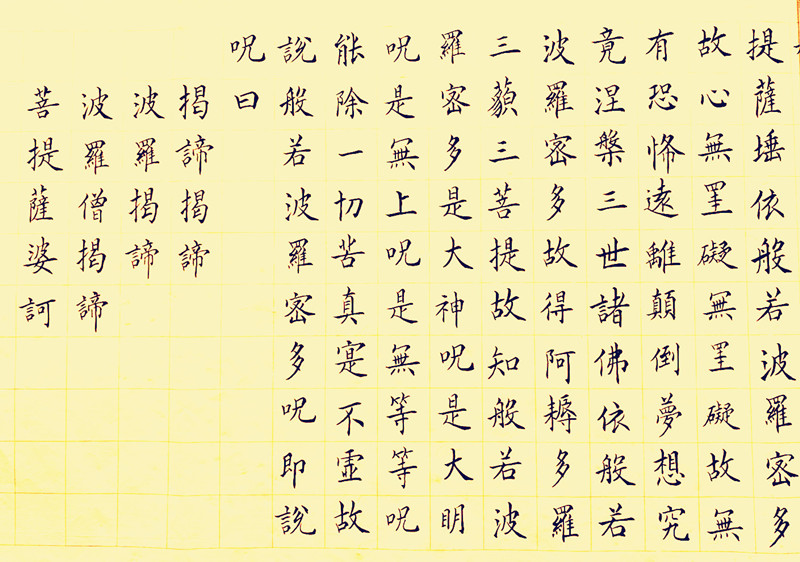 提薩埵依般若波羅密多
故心無罣礙無罣礙故無
有恐怖遠離顛倒夢想究
竟涅槃三世諸佛依般若
波羅密多故得阿耨多羅
三藐三菩提故知般若波
羅密多是大神呪是大明
呪是無上呪是無等等呪
能除一切苦真寔不虛故
說般若波羅密多呪即說
呪曰
揭諦揭諦
波羅揭諦
波羅僧揭諦
菩提薩婆訶